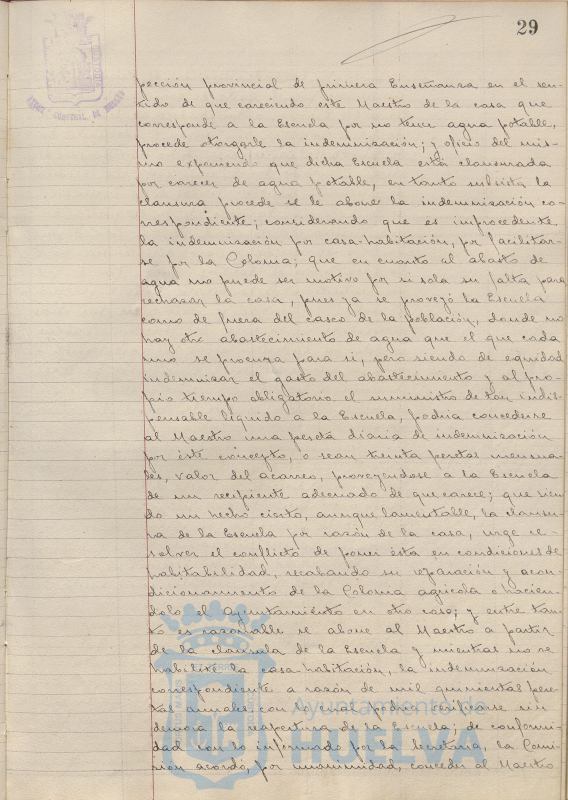 29
pección provincial de primera Enseñanza en el sen-
tido de que careciendo este Maestro de la casa que
corresponde a la Escuela por no tener agua potable,
procede otorgarle la indemnización; y oficio del mis-
mo exponiendo que dicha Escuela está clausurada
por carecer de agua potable, en tanto subsista la
clausura procede se le abone la indemnización co-
rrespondiente; considerando que es improcedente
la indemnización por casa-habitación, por facilitar-
se por la Colonia; que en cuanto al abasto de
agua no puede ser motivo por si sola su falta para
rechazar la casa, pues ya se proveyó la Escuela
como de fuera del casco de la población, donde no
hay otro abastecimiento de agua que el que cada
uno se procura para si, pero siendo de equidad
indemnizar el gasto del abastecimiento y al pro-
pio tiempo obligatorio el suministro de tan indis-
pensable líquido a la Escuela, podría concederse
al Maestro una peseta diaria de indemnización
por éste concepto, o sean treinta pesetas mensua-
les, valor del acarreo, proveyendose a la Escuela
de un recipiente adecuado de que carece; que sien-
do un hecho cierto, aunque lamentable, la clausu-
ra de la Escuela por razón de la casa, urge re-
solver el conflicto de poner ésta en condiciones de
habitabilidad, recabando su reparación y acon-
dicionamiento de la Colonia agrícola o hacien-
dolo el Ayuntamiento en otra casa; y entre tan-
to es razonable se abone al Maestro a partir
de la clausula de la Escuela y mientras no se
habilite la casa-habitación, la indemnización
correspondiente a razón de mil quinientas pese-
tas anuales, con lo cual podría verificarse sin
demora la reapertura de la Escuela; de conformi-
dad con lo informado por la Secretaría, la Comi-
sión acordó, por unanimidad, conceder al Maestro
Ayuntamiento de
HUELVA